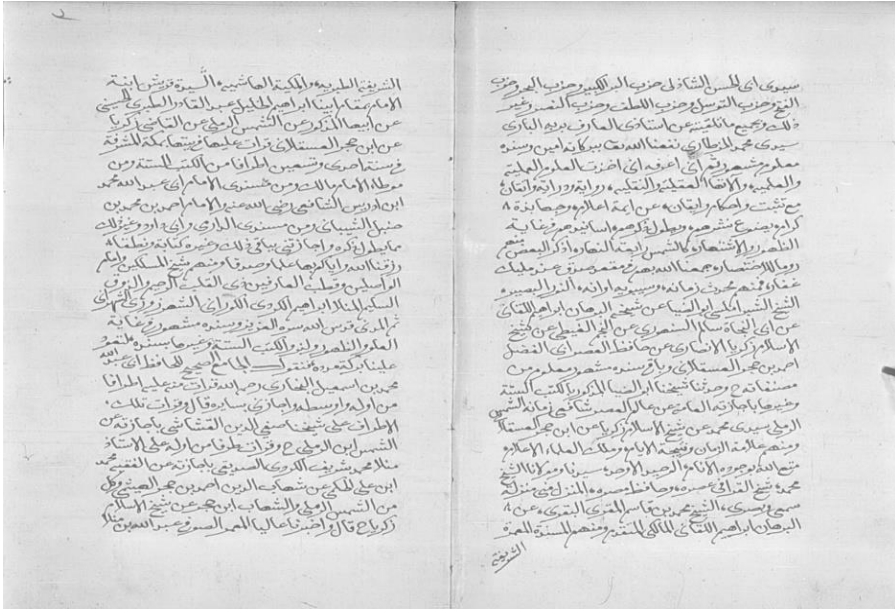 سيدى ابى الحسن الشاذلى حزب البر الكبير وحزب البحر وحزب
الفتح وحزب التوسل وحزب اللطف وحزب النصر وغير
ذلك وجميع ما تلقيته عن استاذى العارف بربه البارى
سيدى محمد المزطارى نفعنا الله ببركاته امين وسنده
معلوم مشهور انى اخذت العلوم العمليه
والعلميه والعقليه والنقليه رواية ودراية واتقان
مع تثبت واحكام وايقان عن ايمة اعلام وجهابذة
كرام يضوع نشرهم ويطول ذكرهم اسانيدهم فى غاية
الظهور والاشتهار كالشمس رابعة النهار اذكر البعض منهم
روما للاختصار جمعنا الله بهم فى مقعد صدق عند مليك
محدث زمانه وسيبويه اوانه
الشيخ ابو الضيا عن شيخه البرهان ابراهيم اللقانى
عن ابى النجاة سالم السنهورى عن النجم الغيطى عن شيخ
الاسلام زكريا الانصارى عن حافظ العصر ابى الفضل
احمد بن حجر العسقلانى وباقى سنده مشهور معلوم من
مصنفاته ح وحدثنا شيخنا ابو الضيا المذكور بالكتب الستة
وغيرها باجازته العامة عن عالم العصر شافعى زمانه الشمس
الرملى سيدى محمد عن شيخ الاسلام زكريا عن ابن حجر العسقلانى
ومنهم علامة الزمان ونتيجة الايام وملك العلماء الاعلام
متع الله بوجوده الانام الوحيد الاوحد سيدنا ومولانا الشيخ
محمد شيخ القرا فى عصره وحافظ مصره المنزل منى منزلة
سمعى وبصرى الشيخ محمد بن قاسم المقرى البقرى عن
البرهان ابراهيم اللقانى المالكى المتقدم ومنهم المسندة المعمرة
الشريفة
الشريفة الطبرية والمكية الهاشمية السيدة قريش ابنة
الامام بمقام ابينا ابراهيم الخليل عبد القادر الطبرى الحسينى
عن ابيها المذكور عن الشمس الرملى عن القاضى زكريا
عن ابن حجر العسقلانى قرات عليها فى بيتها بمكة المشرفة
فى سنة احدى وتسعين اطرافا من الكتب الستة ومن
موطا الامام مالك ومن مسندى الامام ابى عبد الله محمد
ابن ادريس الشافعى رضى الله عنه والامام احمد بن محمد بن
حنبل الشيبانى ومن مسندى الدارى وابى داود وغير ذلك
مما يطول ذكره واجازتنى بباقى ذلك وغيره كتابة ونطقا
رزقنا الله واياكم بها علما وصدقا ومنهم شيخ المسلكين وامام
الواصلين وقطب العارفين ذى القلب الرحيم والذوق
السليم المنلا ابراهيم الكردى الكورانى الشهرزورى الشهرانى
ثم المدنى قدس الله سره العزيز وسنده مشهور فى غاية
العلو والظهور الكتب الستة وغيرها بسنده
علينا بركته فنقول الجامع الصحيح للحافظ ابى عبد الله
محمد بن اسمعيل البخارى رحمه الله قرات منه عليه اطرافا
من اوله واوسطه واجازنى بسايره قال قرات تلك
الاطراف على شيخنا صفى الدين القشاشى باجازته عن
الشمس ابن الرملى ح وقرات طرفا من اوله على الاستاذ
منلا محمد شريف الكردى الصديقى باجازته عن الفقيه محمد
ابن على المكى عن شهاب الدين احمد بن حجر الهيتمى وكل
من الشمس الرملى والشهاب ابن حجر عن شيخ الاسلام
زكريا ح قال واخبرنا عاليا المعمر الصوفى عبد الله بن منلا